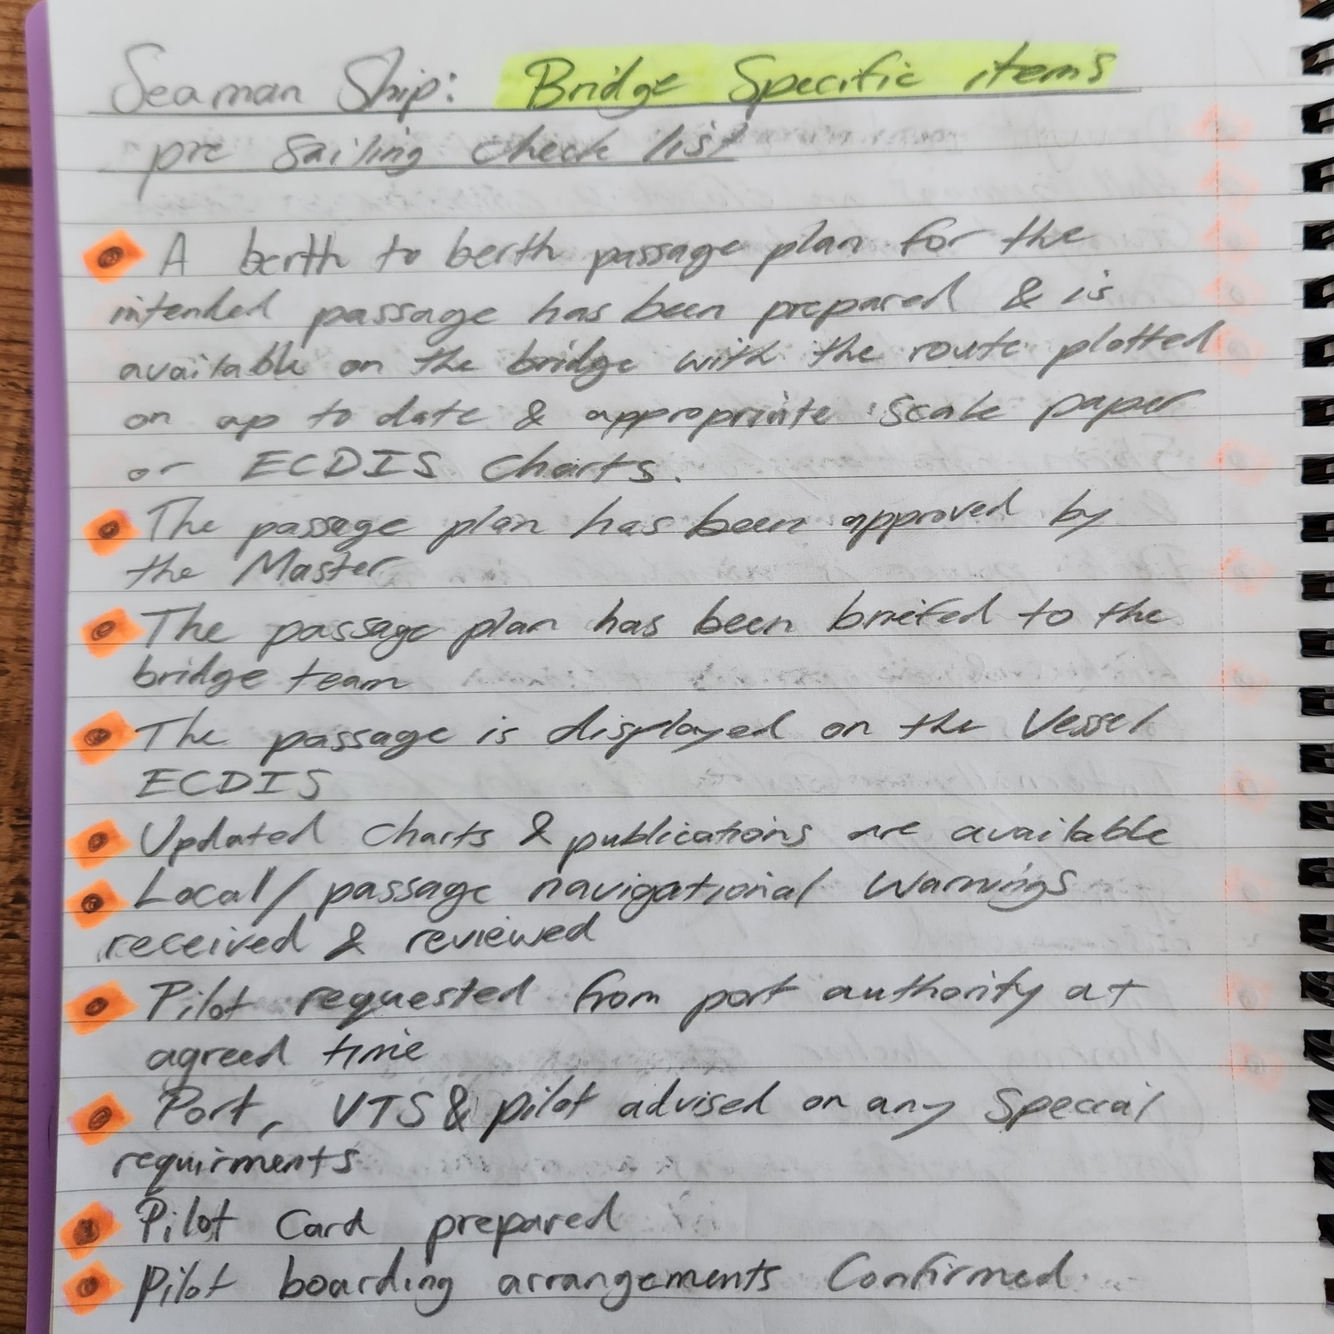 Seaman Ship: Bridge Specific items
pre Sailing check list
A berth to berth passage plan for the
intended passage has been prepared & is
available on the bridge with the route plotted
on up to date & appropriate scale paper
or ECDIS Charts.
The passage plan has been approved by
the Master
The passage plan has been briefed to the
bridge team
The passage is displayed on the Vessel
ECDIS
Updated Charts & publications are available
Local/passage navigational Warnings
received & reviewed
Pilot requested from port authority at
agreed time
Port, VTS & pilot advised on any Special
requirments
Pilot Card prepared
Pilot boarding arrangements Confirmed